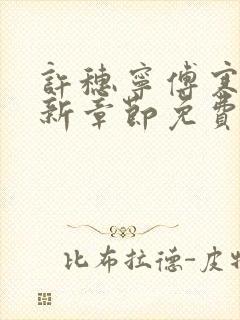 許穗寧傅寒
新章節免費
比布拉德-皮特